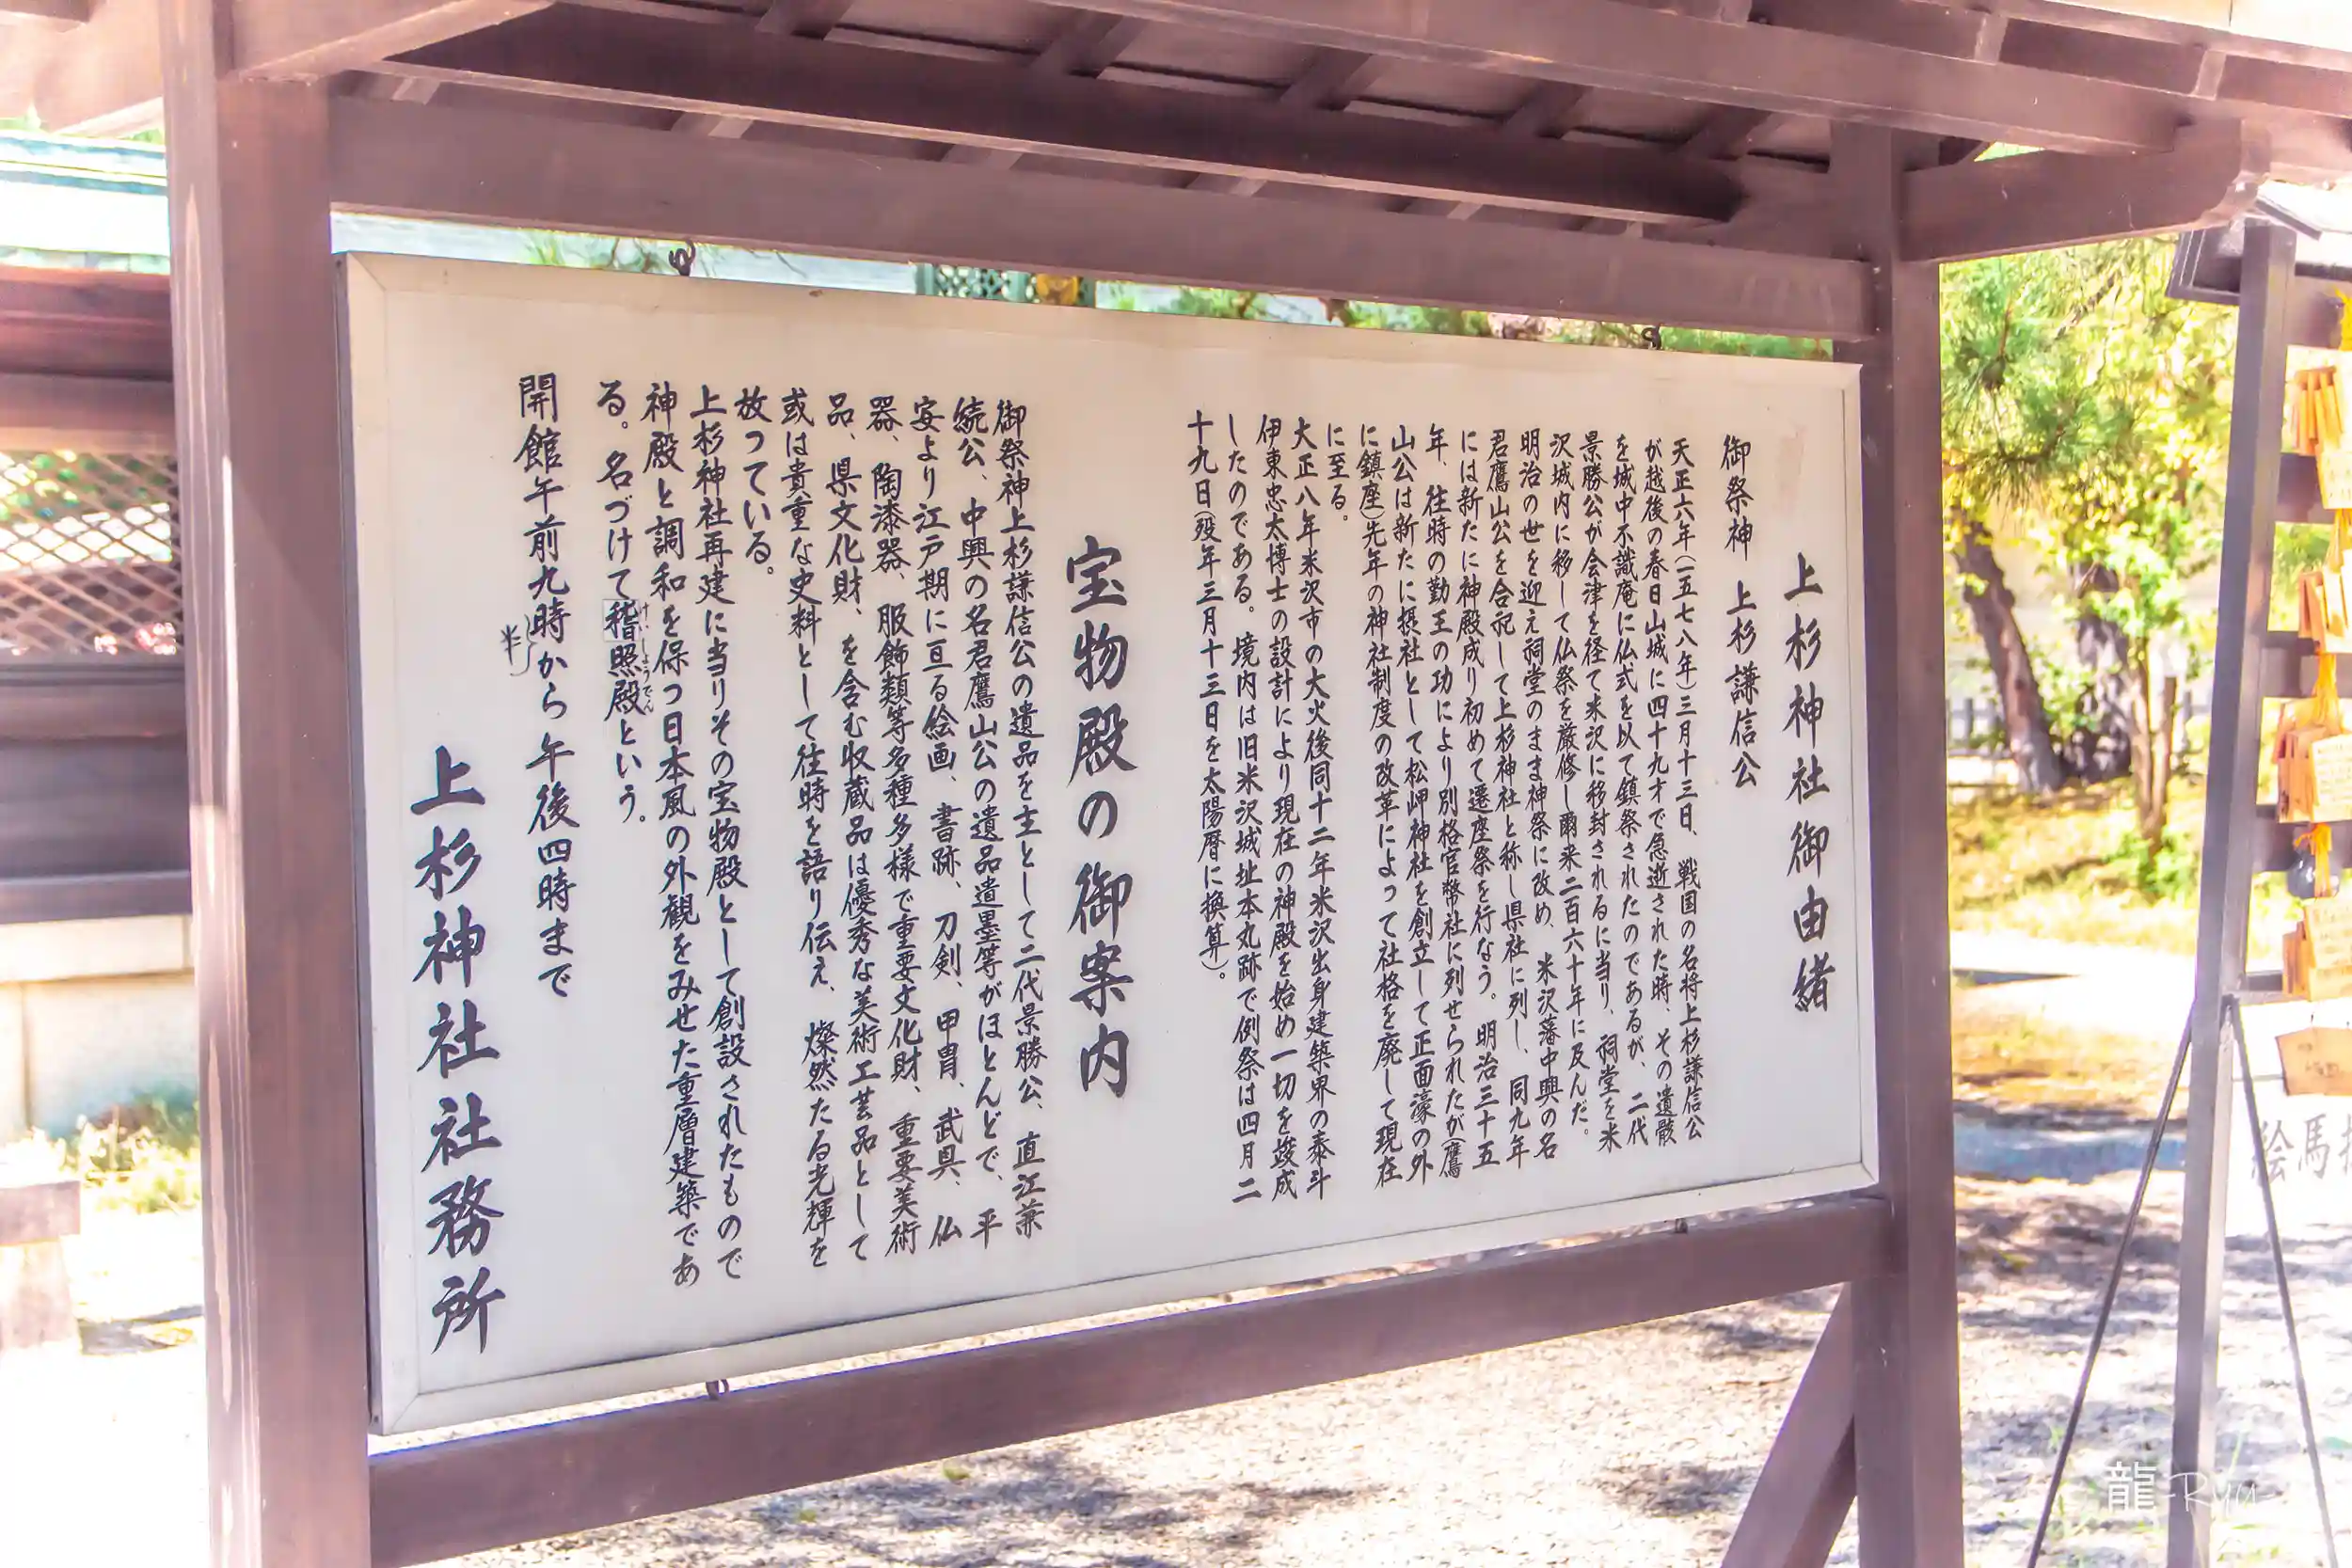 上杉神社御由緒
御祭神 上杉謙信公
天正六年(一五七八年)三月十三日、戦国の名将上杉謙信公
が越後の春日山城に四十九才で急逝された時、その遺骸
を城中不識庵に仏式を以て鎮祭されたのであるが、二代
景勝公が会津を経て米沢に移封されるに当り、祠堂を米
沢城内に移して仏祭を厳修し爾来二百六十年に及んだ。
明治の世を迎え祠堂のまま神祭に改め、米沢藩中興の名
君鷹山公を合祀して上杉神社と称し県社に列し、同九年
には新たに神殿成り初めて遷座祭を行なう。明治三十五
年、往時の勤王の功により別格官幣社に列せられたが(鷹
山公は新たに摂社として松岬神社を創立して正面濠の外
に鎮座)先年の神社制度の改革によって社格を廃して現在
に至る。
大正八年米沢市の大火後同十二年米沢出身建築界の泰斗
伊東忠太博士の設計により現在の神殿を始め一切を竣成
したのである。境内は旧米沢城址本丸跡で例祭は四月二
十九日(歿年三月十三日を太陽暦に換算)。
宝物殿の御案内
御祭神上杉謙信公の遺品を主として二代景勝公、直江兼
続公、中興の名君鷹山公の遺品遺墨等がほとんどで、平
安より江戸期に亘る絵画、書跡、刀剣、甲冑、武具、仏
器、陶漆器、服飾類等多種多様で重要文化財、重要美術
品、県文化財、を含む収蔵品は優秀な美術工芸品として
或は貴重な史料として往時を語り伝え、燦然たる光輝を
放つている。
上杉神社再建に当りその宝物殿として創設されたもので
神殿と調和を保つ日本風の外観をみせた重層建築であ
る。名づけて稽照殿という。
けいしょうでん
開館午前九時から午後四時まで
半
上杉神社社務所
絵馬
龍-Ryu-